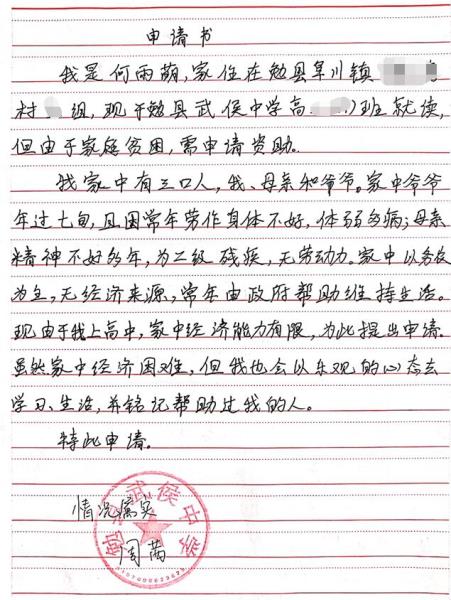 申请书
我是何雨萌,家住在勉县阜川镇
村 组,现于勉县武侯中学高 )班就读,
但由于家庭贫困,需申请资助。
我家中有三口人,我、母亲和爷爷。家中爷爷
年过七旬,且因常年劳作身体不好,体弱多病;母亲
精神不好多年,为二级残疾,无劳动力。家中以务农
为主,无经济来源,常年由政府帮助维持生活。
现由于我上高中,家中经济能力有限,为此提出申请.
虽然家中经济困难,但我也会以乐观的心态去
学习、生活,并铭记帮助过我的人。
特此申请.
情况属实
周茜
勉县武侯中学